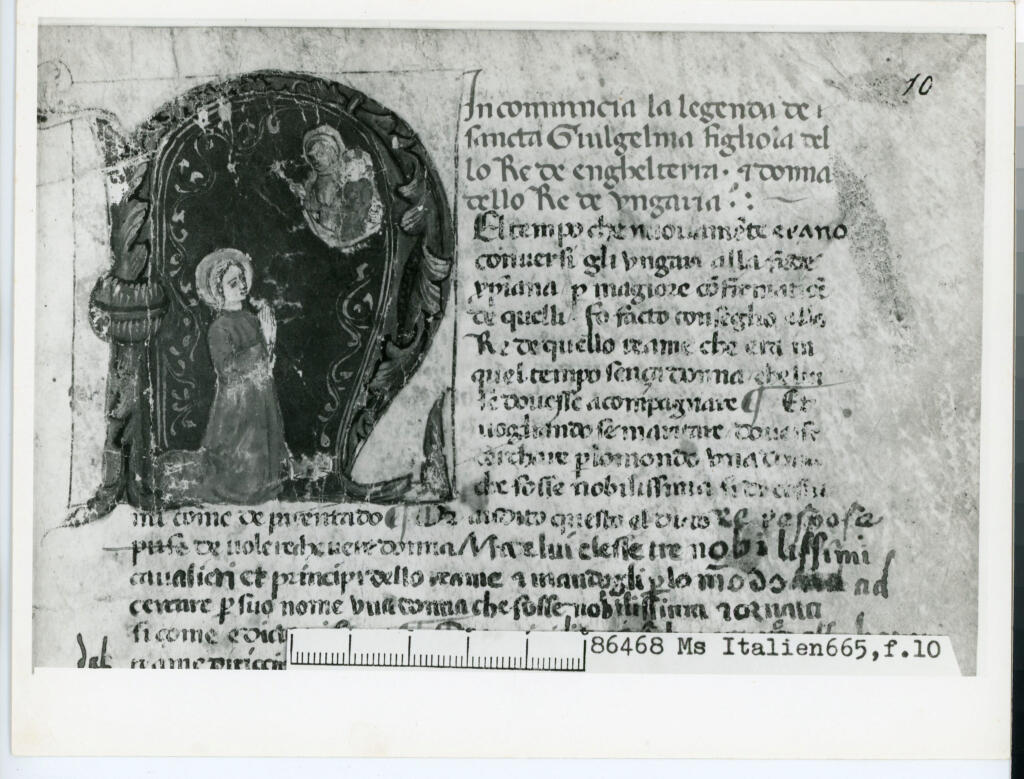 10
In comincia la legenda de
sancta Guilgelma figliola del
lo Re de enghelterra. ⁊ donna
dello Re de yngaria
El tempo che nuouamēte erano
conuersi gli yngari alla fede
xp̄iana p magiore
de quelli fo facto conseglio
Re de quello reame che era in
quel tempo senza donna che
se douesse acompagnare ¶ Et
uogliando se maritare douesse
cerchare p lo mondo vna
che fosse nobilissima si de
mi come de parentado ¶ audito questo el dicto Re resposse
de uolere donna Ma elesse tre nobilissimi
caualieri et principi dello reame ⁊ mandogli p lo mōdo ad
cercare p suo nome vna donna che fosse nobilissima ⁊ ornata
si come e
del reame
86468 Ms Italien665,f.10